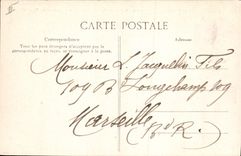 CARTE POSTALE
Correspondance
Adresse
Tous les pays étrangers n'acceptent pas la
correspondance au recto, se renseigner à la poste
Monsieur L. Jacquelin Fils
109 B Longchamp 109
Marseille
(B d R.)